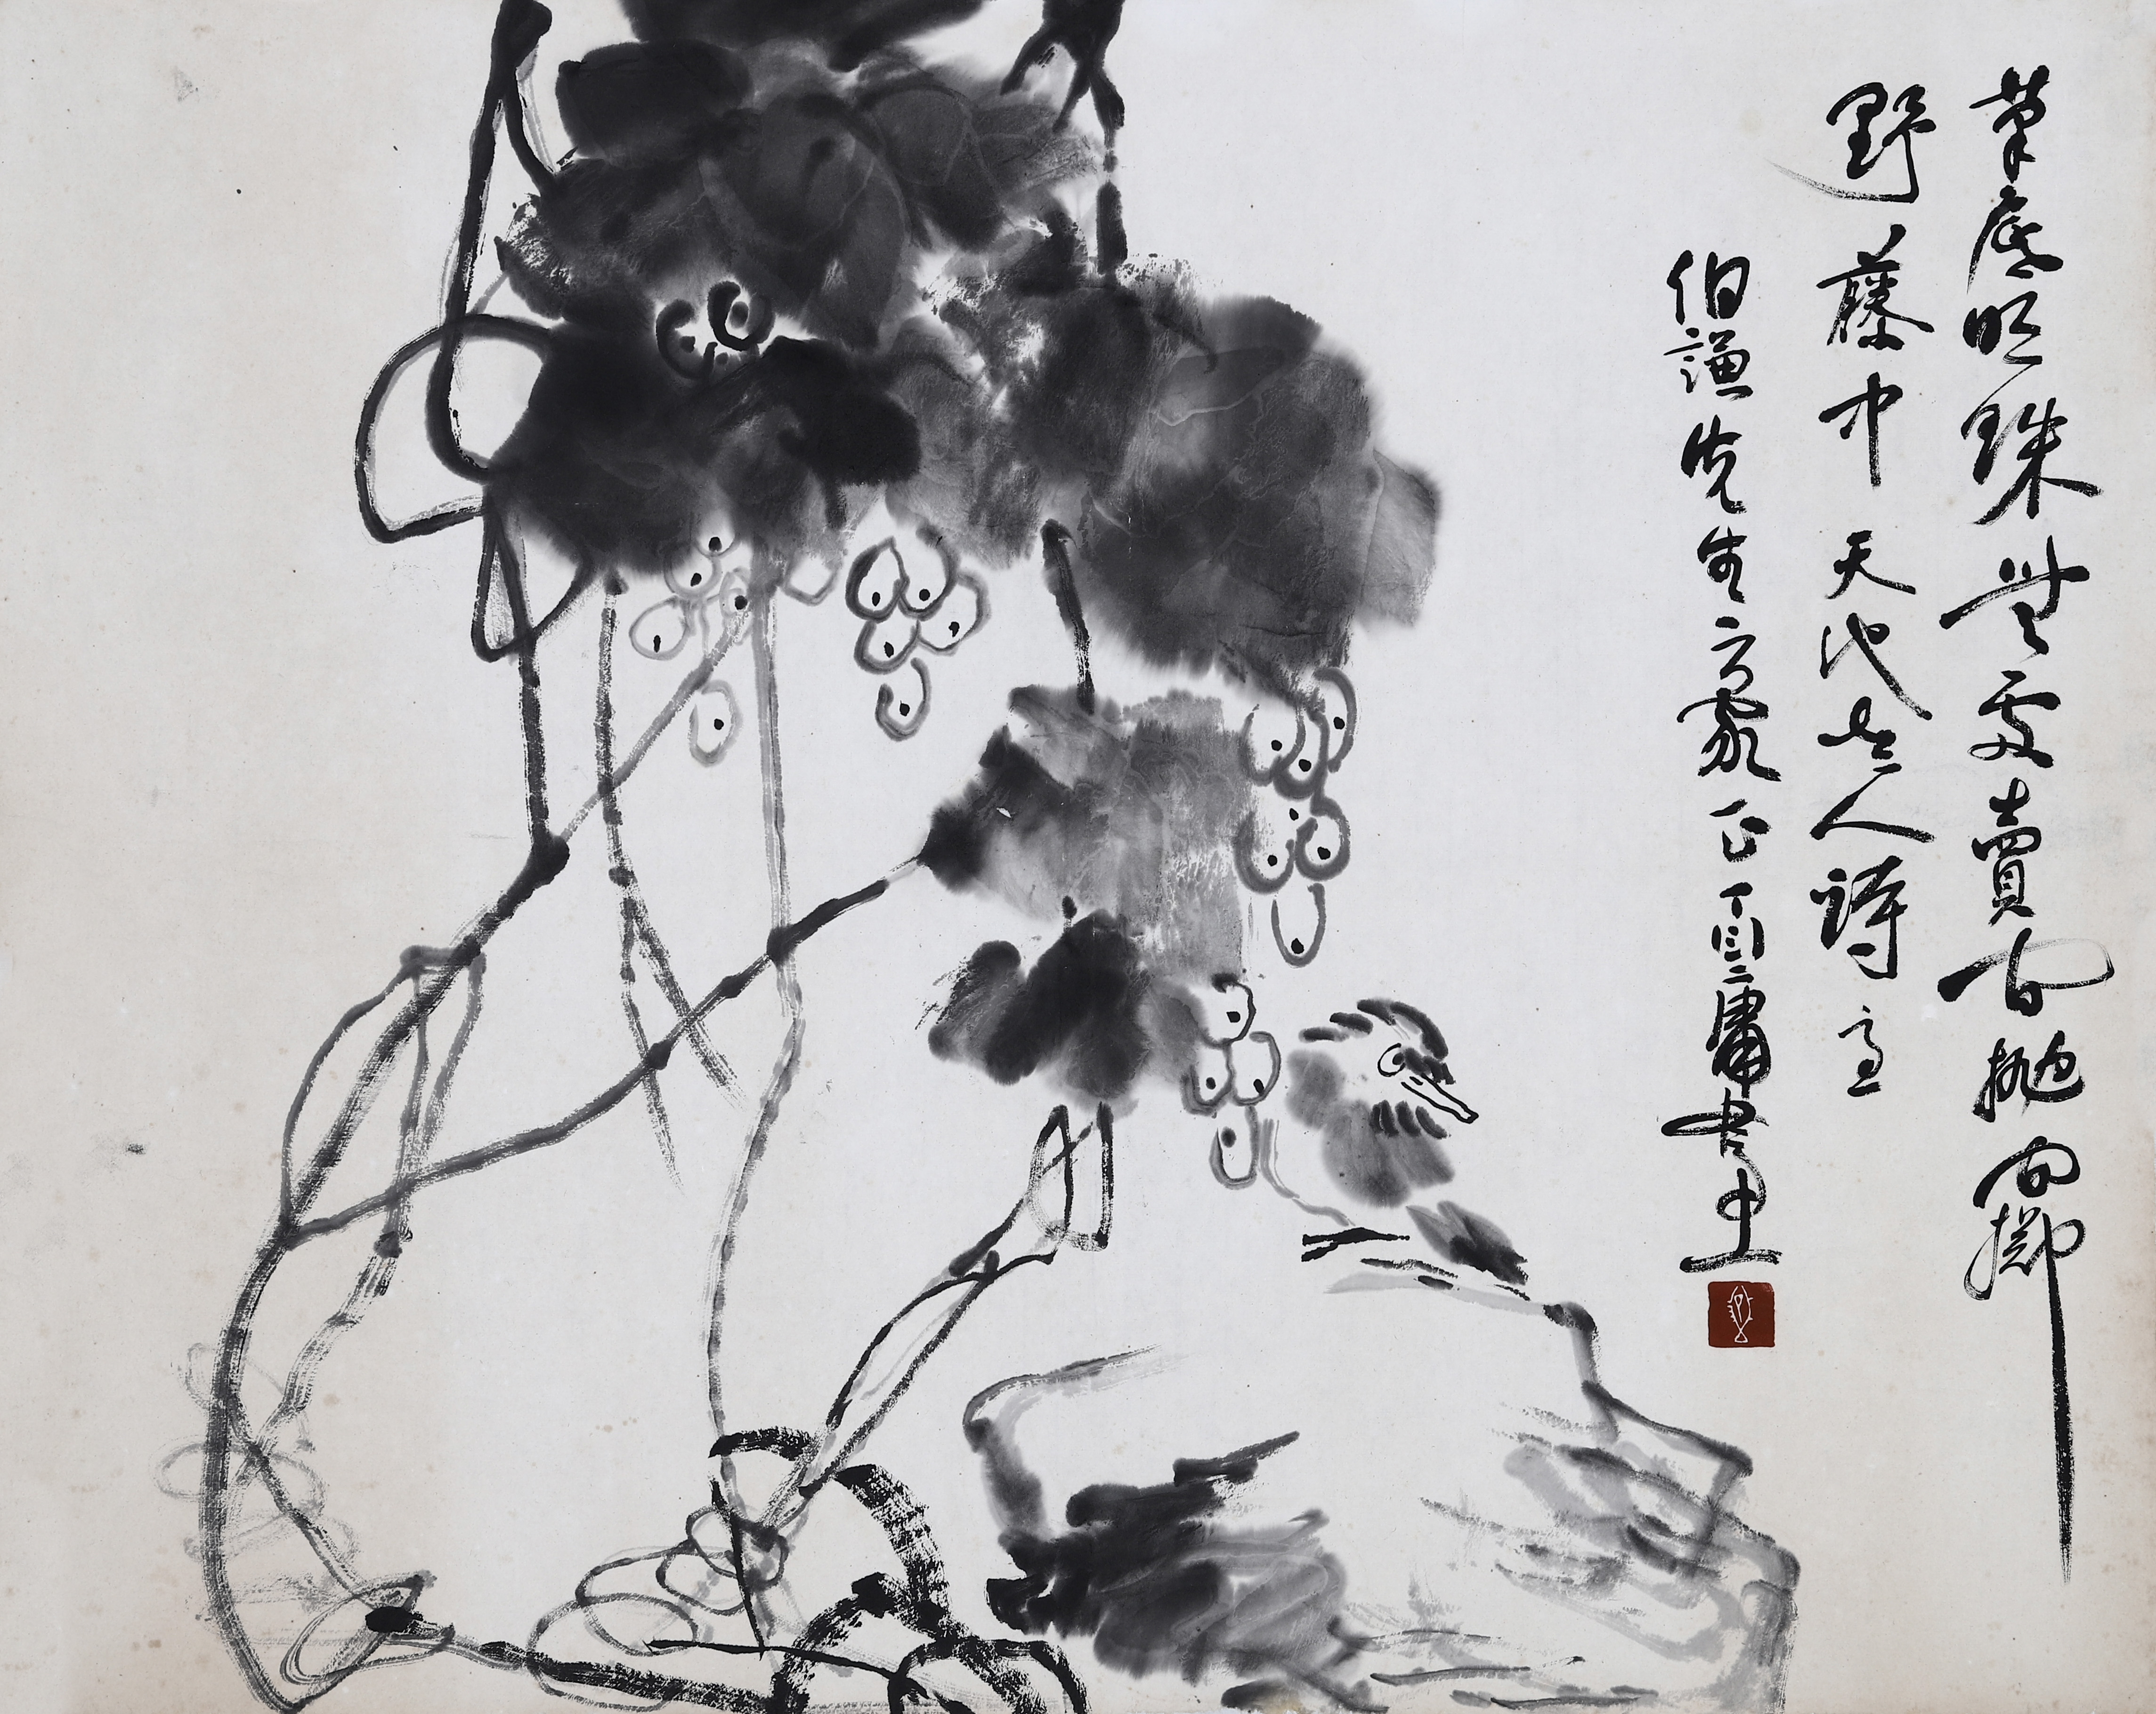 筆底明珠無處賣閒拋閒擲
野藤中天池老人詩意
伯謙先生方家正丁衍庸畫